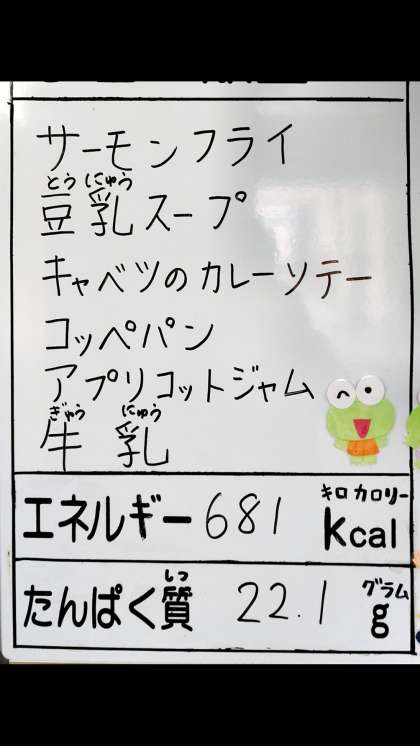 サーモンフライ
とうにゅう
豆乳スープ
キャベツのカレーソテー
コッペパン
アプリコットジャム
ぎゅう にゅう
牛 乳
キロカロリー
エネルギー 681 Kcal
しつ グラム
たんぱく質 22.1 g